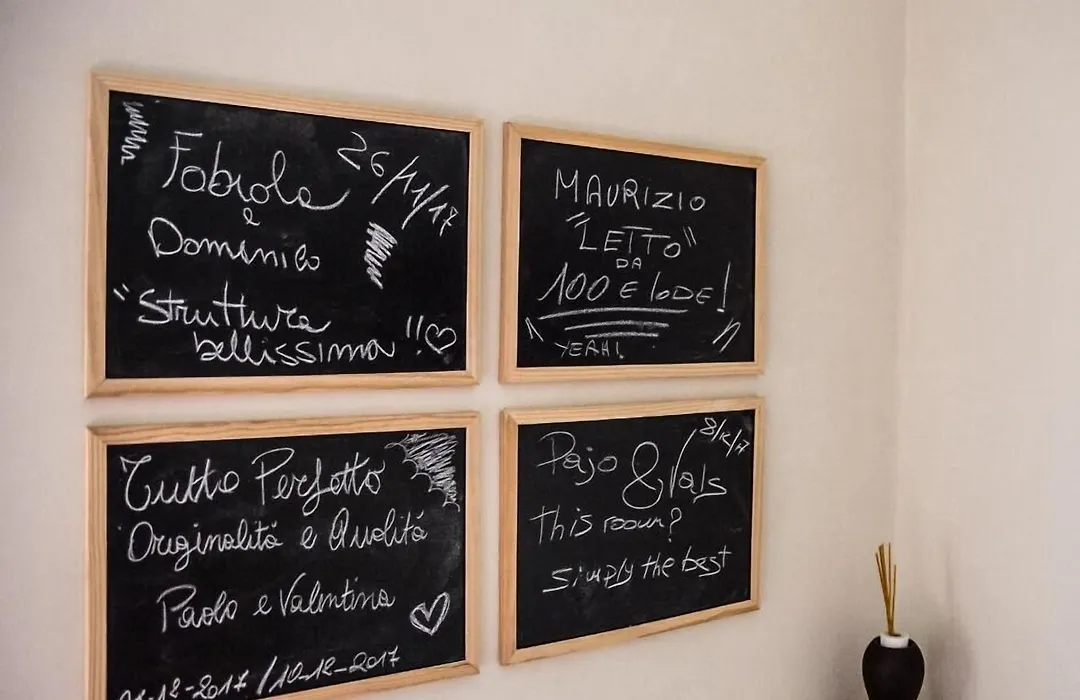 Fabiola
26/11/17
e
Domenico
"Struttura
bellissima"!!
MAURIZIO
"LETTO"
DA
100 E lODE!
YEAH!
Tutto Perfetto
Originalitá e Qualitá
Paolo e Valentina
-12-2017/10-12-2017
Pajo & Vals
8/12/17
this room?
simply the best